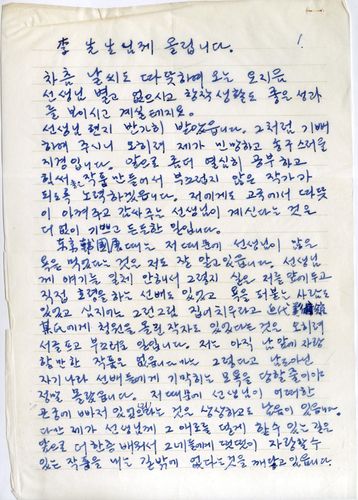 李 선생님께 올립니다. 1.
차츰 날씨도 따뜻하여 오는 요지음
선생님 별고 없으시고 창작생활도 좋은 성과
를 보이시고 계실테지요.
선생님 편지 반가히 받았읍니다. 그처럼 기뻐
하여 주시니 오히려 제가 민망하고 송구스러울
지경입니다. 앞으로 좀더 열심히 공부하고
힘써 작품 만들어서 부끄럽지 않은 작가가
되도록 노력하겠읍니다. 저에게도 고국에서 따뜻
이 아껴주고 감싸주는 선생님이 계신다는 것은
더없이 기쁘고 든든한 일입니다.
때는 저때문에 선생님이 많은
욕을 먹었다는 것은 저도 잘 알고있읍니다. 선생님
께 얘기는 일체 안해서 그렇지 실은 저를 앞에두고
직접 호령을 하는 선배도 있었고 욕을 퍼붓는 사람도
있었고 심지어는 그런그림 집어치우라고 近代
에게 청원을 올린 작자도 있었다는 것은 오히려
서글프고 부끄러운 일입니다. 저는 아직 남앞에 자랑
할만한 작품은 없읍니다마는 그렇다고 남도아닌
자기나라 선배들에게 기막히는 모욕을 당할줄이야
정말 몰랐읍니다. 저때문에 선생님이 어떠한
곤경에 빠져 있었는가는 것은 상상하고도 남음이 있읍니다.
다만 제가 선생님께 그 애로를 덜게 할수 있는 길은
앞으로 더한층 배워서 그네들에게 떳떳이 자랑할수
있는 작품을 내는 길밖에 없다는것을 깨닫고 있읍니다.